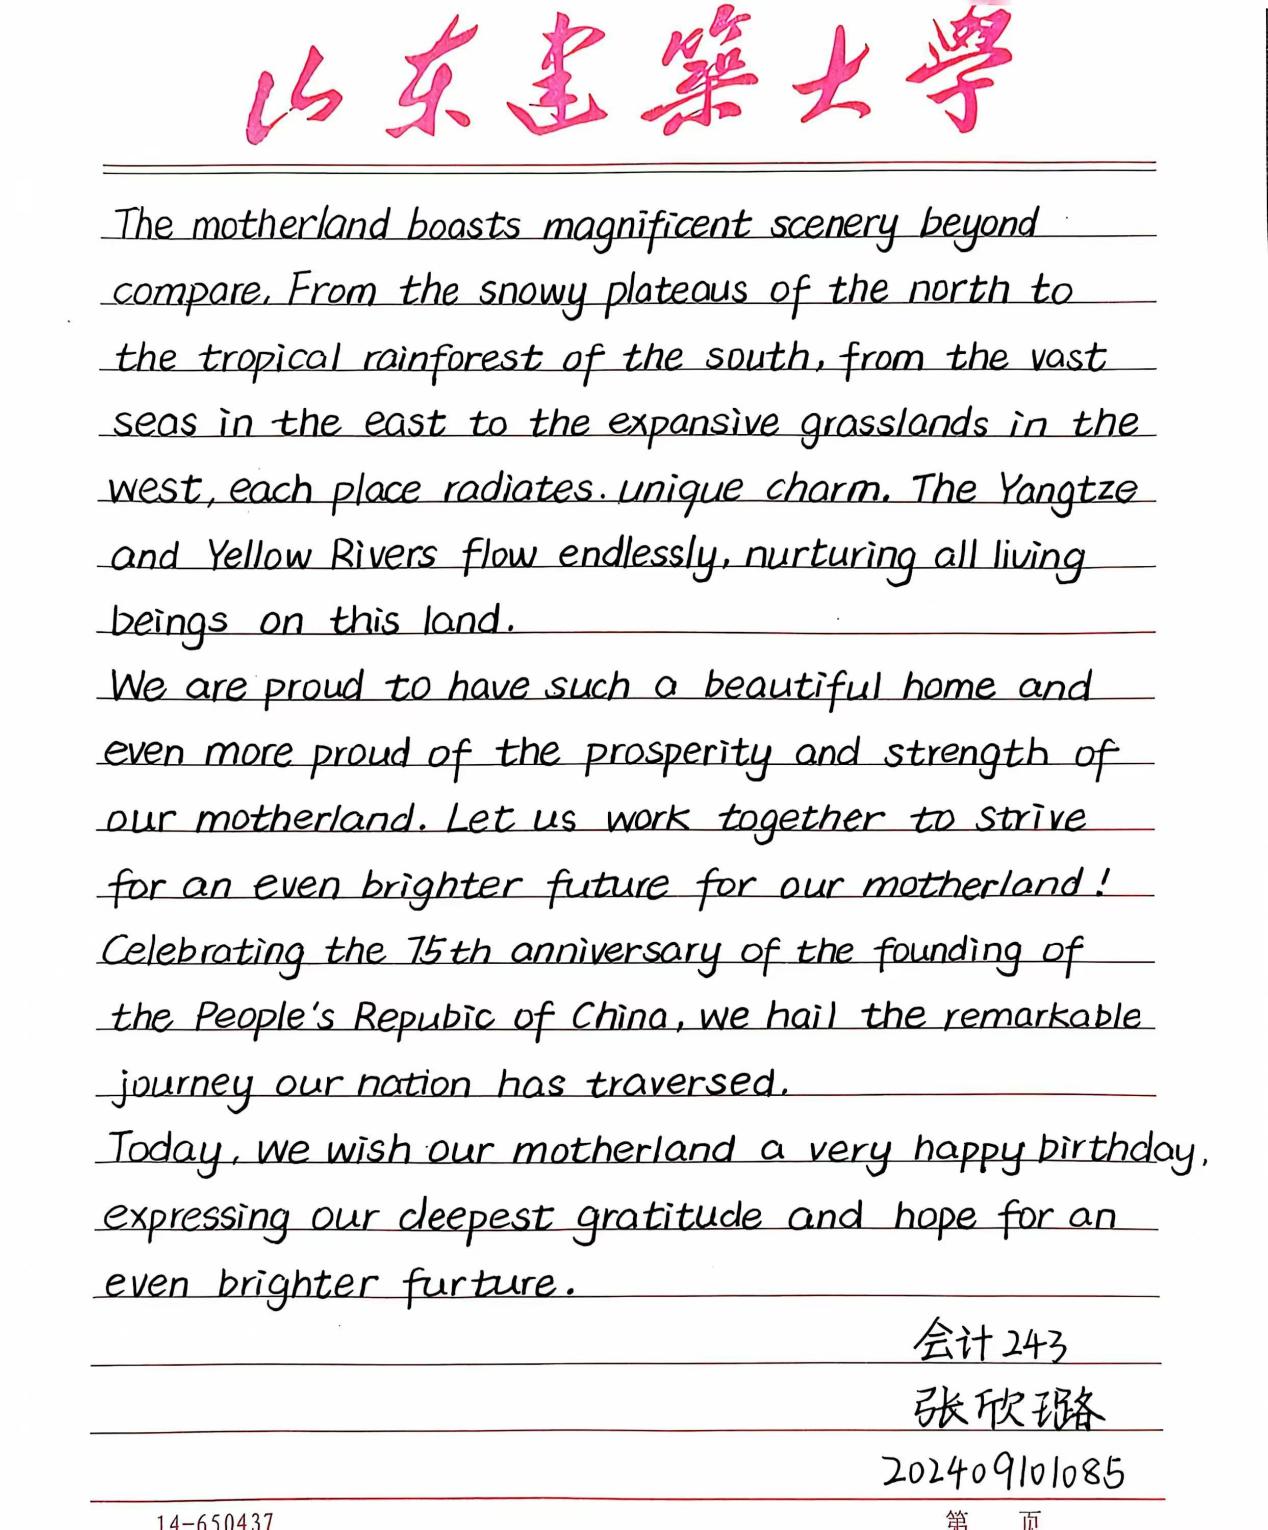 山东建築大學
The motherland boasts magnificent scenery beyond
compare. From the snowy plateaus of the north to
the tropical rainforest of the south, from the vast
seas in the east to the expansive grasslands in the
west, each place radiates. unique charm. The Yangtze
and Yellow Rivers flow endlessly, nurturing all living
beings on this land.
We are proud to have such a beautiful home and
even more proud of the prosperity and strength of
our motherland. Let us work together to strive
for an even brighter future for our motherland!
Celebrating the 75th anniversary of the founding of
the People's Repubic of China, we hail the remarkable
journey our nation has traversed.
Today, we wish our motherland a very happy birthday,
expressing our deepest gratitude and hope for an
even brighter furture.
会计243
张欣璐
202409101085
14-650437 第 页